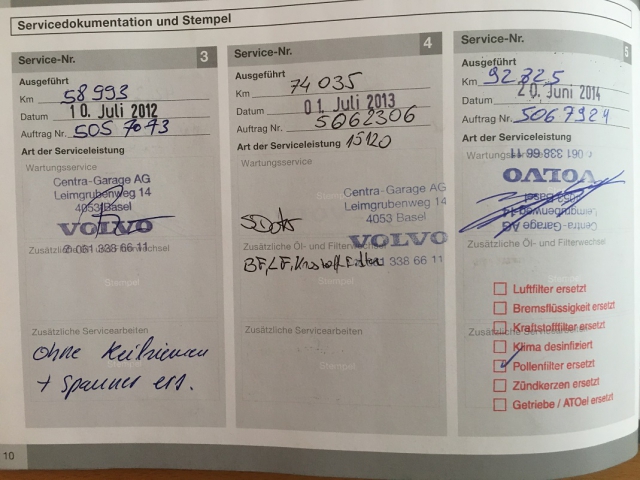 Servicedokumentation und Stempel
Service-Nr. 3
Ausgeführt
Km 58993
Datum 10. Juli 2012
Auftrag Nr. 505 7073
Art der Serviceleistung
Wartungsservice
Centra-Garage AG
Leimgrubenweg 14
4053 Basel
VOLVO
Zusätzliche Öl- und Filterwechsel
061 338 66 11
Stempel
Zusätzliche Servicearbeiten
ohne Keilriemen
+ Spanner ers.
Service-Nr. 4
Ausgeführt
Km 74035
Datum 01. Juli 2013
Auftrag Nr. 5062306
Art der Serviceleistung 15120
Wartungsservice
Centra-Garage AG
Leimgrubenweg 14
4053 Basel
Zusätzliche Öl- und Filterwechsel
VOLVO
061 338 66 11
Stempel
Zusätzliche Servicearbeiten
Stempel
Service-Nr. 5
Ausgeführt
Km 92825
Datum 20. Juni 2014
Auftrag Nr. 5067924
Art der Serviceleistung
Wartungsservice
061 338 66 11
VOLVO
4053 Basel
Leimgrubenweg 14
Centra-Garage AG
Zusätzliche Öl- und Filterwechsel
Luftfilter ersetzt
Bremsflüssigkeit ersetzt
Kraftstofffilter ersetzt
Zusätzliche Servicearbeiten
Klima desinfiziert
Pollenfilter ersetzt
Zündkerzen ersetzt
Getriebe / ATOel ersetzt
10